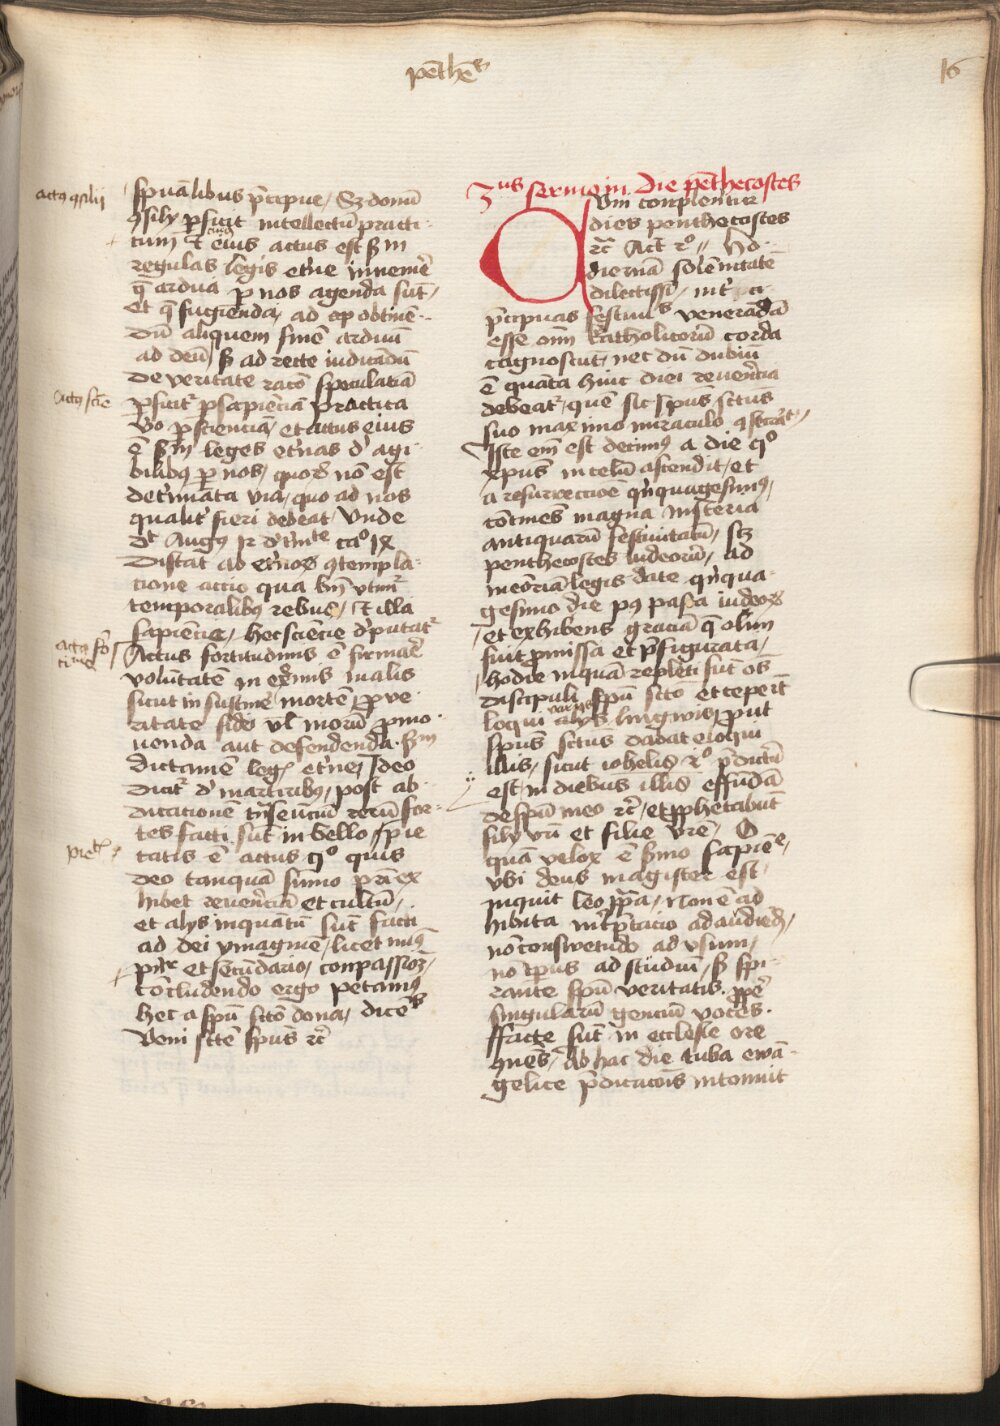 penthes
16
actus consilii
spualibus precipue / Sed donum
consily perficit intellectum practi-
cum et cuius eius actus est secundum
regulas legis eterne invenire
que ardua per nos agenda sunt /
et que fugienda / ad opus obtinen-
dum aliquem finem arduum
ad deum / sed ad recte iudicandum
de veritate racio speculativa
actus scie
perficitur per sapienciam practica
vero per scienciam / et actus eius
est secundum leges eternas de agi-
bilibus per nos / quorum non est
determinata via / quo ad nos
qualiter fieri debeat / Unde
dicit Augus 12 de trinitate ca° 19
distat ab eternorum contempla-
cione actio qua bene utimur
temporalibus rebus / et illa
sapiencie / hec sciencie deputatur
actus for
titudinis
Actus fortitudinis est firmare
voluntatem in extremis malis
sicut in sustinendo mortem pro ve-
ritate fidei vel morum promo-
venda aut defendenda secundum
dictamen legis eterne / Ideo
dicitur de martiribus / post ab-
dicationem transeuncium rerum for-
tes facti sunt in bello / pie
pietatis
tatis est actus quo quis
deo tanquam summo patri ex
hibet reverenciam et cultum /
et alys inquantum sunt facti
ad dei ymaginem / licet minus
principaliter et secundario / conpassionem /
Concludendo ergo petamus
hec a spiritu sancto dona / dicens
Veni sancte spiritus etc
3us sermo in die penthecostes
Cum conplerentur
dies penthecostes
etc Act 2° // Ho-
diernam solemnitatem
dilectissimi / inter
precipuas festivitates venerandam
esse omnium katholicorum corda
cognoscunt / nec dum dubium
est quanta huic diei reverencia
debeatur / quem sic spiritus sanctus
suo maximo miraculo consecravit /
Iste enim est decimus a die quo
christus in celum ascendit / et
a resurrectione quinquagesimus /
continens magna misteria
antiquarum festivitatum / scilicet
penthecostes iudeorum / ad
memoriam legis date quinqua-
gesimo die post pasca iudeorum
et exhibens graciam que olim
fuit promissa et prefigurata /
hodie inquam repleti sunt omnes
discipuli spiritu sancto et ceperunt
loqui varys alys lingwis / prout
spiritus sanctus dabat eloqui
illis / sicut iohelis 2° predictum
est / in diebus illis effundam
de spiritu meo etc / et prophetabunt
fily vestri et filie vestre / O
quam velox est sermo sapiencie /
ubi deus magister est /
inquit leo papa / Non est ad
hibita interpretacio ad audiendum /
non conswetudo ad usum /
non tempus ad studium / sed spi-
rante spiritu veritatis proprie
singularum gencium voces
ffacte sunt in ecclesie ore
communes / Ab hac die tuba ewan-
gelice predicacionis intonuit